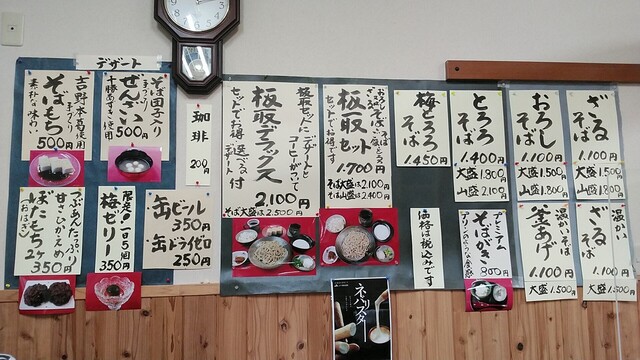 デザート
吉野本葛使用
手づくり
そばもち
500円
素朴な味わい
そば団子入り
手づくり
ぜんざい
500円
十勝あずき使用
珈琲
200円
つぶあんたっぷり
甘さひかえめ
ぼたもち
(おはぎ)
2ヶ
350円
梅ゼリー
350円
缶ビール
350円
缶ドライゼロ
250円
板取セットに
デザートと
コーヒーがついて
板取デラックス
2,100円
セットでお得
選べる
デザート
付
そば大盛は2,500円
おろしそば
ざるそば
板取セット
1,700円
セットでお得
そば大盛は2,100円
そば山盛は2,400円
梅とろろそば
1,450円
とろろそば
1,400円
大盛1,800
山盛2,100
おろしそば
1,100円
大盛1,500
山盛1,800
ざるそば
1,100円
大盛1,500
山盛1,800
価格は税込みです
プレミアム
そばがき
800円
温かいそば
釜あげ
1,100円
大盛1,500円
温かい
ざるそば
1,100円
大盛1,500円
ネバリスター